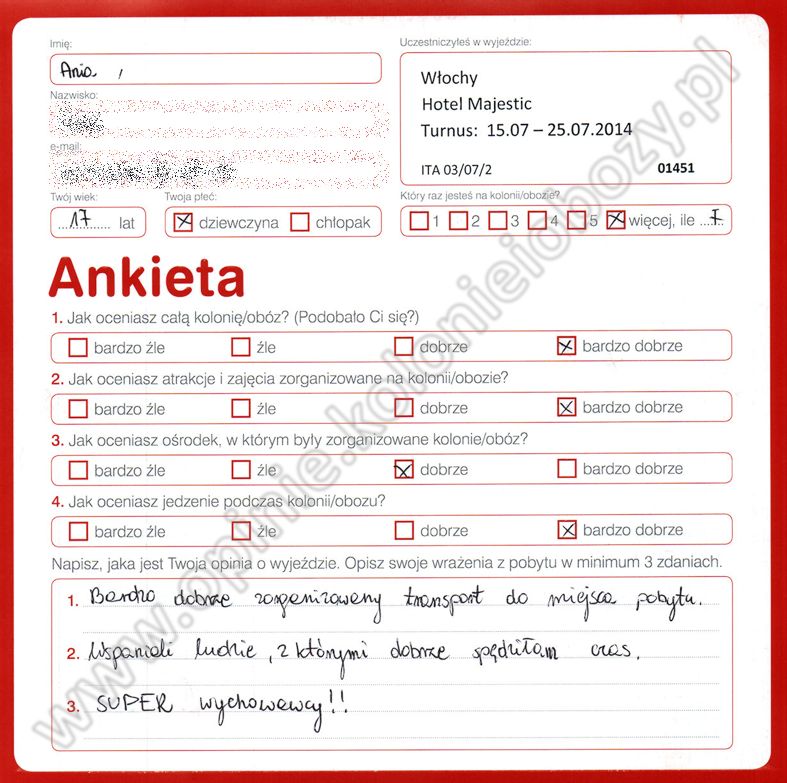 Imię:
Ania,
Uczestniczyłeś w wyjeździe:
Włochy
Hotel Majestic
Turnus: 15.07 – 25.07.2014
ITA 03/07/2 01451
Nazwisko:
e-mail:
Twój wiek:
17 lat
Twoja płeć:
dziewczyna chłopak
Który raz jesteś na kolonii/obozie?
1 2 3 4 5 więcej, ile
Ankieta
1. Jak oceniasz całą kolonię/obóz? (Podobało Ci się?)
bardzo źle źle dobrze bardzo dobrze
2. Jak oceniasz atrakcje i zajęcia zorganizowane na kolonii/obozie?
bardzo źle źle dobrze bardzo dobrze
3. Jak oceniasz ośrodek, w którym były zorganizowane kolonie/obóz?
bardzo źle źle dobrze bardzo dobrze
4. Jak oceniasz jedzenie podczas kolonii/obozu?
bardzo źle źle dobrze bardzo dobrze
Napisz, jaka jest Twoja opinia o wyjeździe. Opisz swoje wrażenia z pobytu w minimum 3 zdaniach.
1. Bardzo dobrze zorganizowany transport do miejsca pobytu.
2. Wspaniali ludzie, z którymi dobrze spędziłam czas.
3. SUPER wychowawcy!!
www.opinie.kolonieiobozy.pl